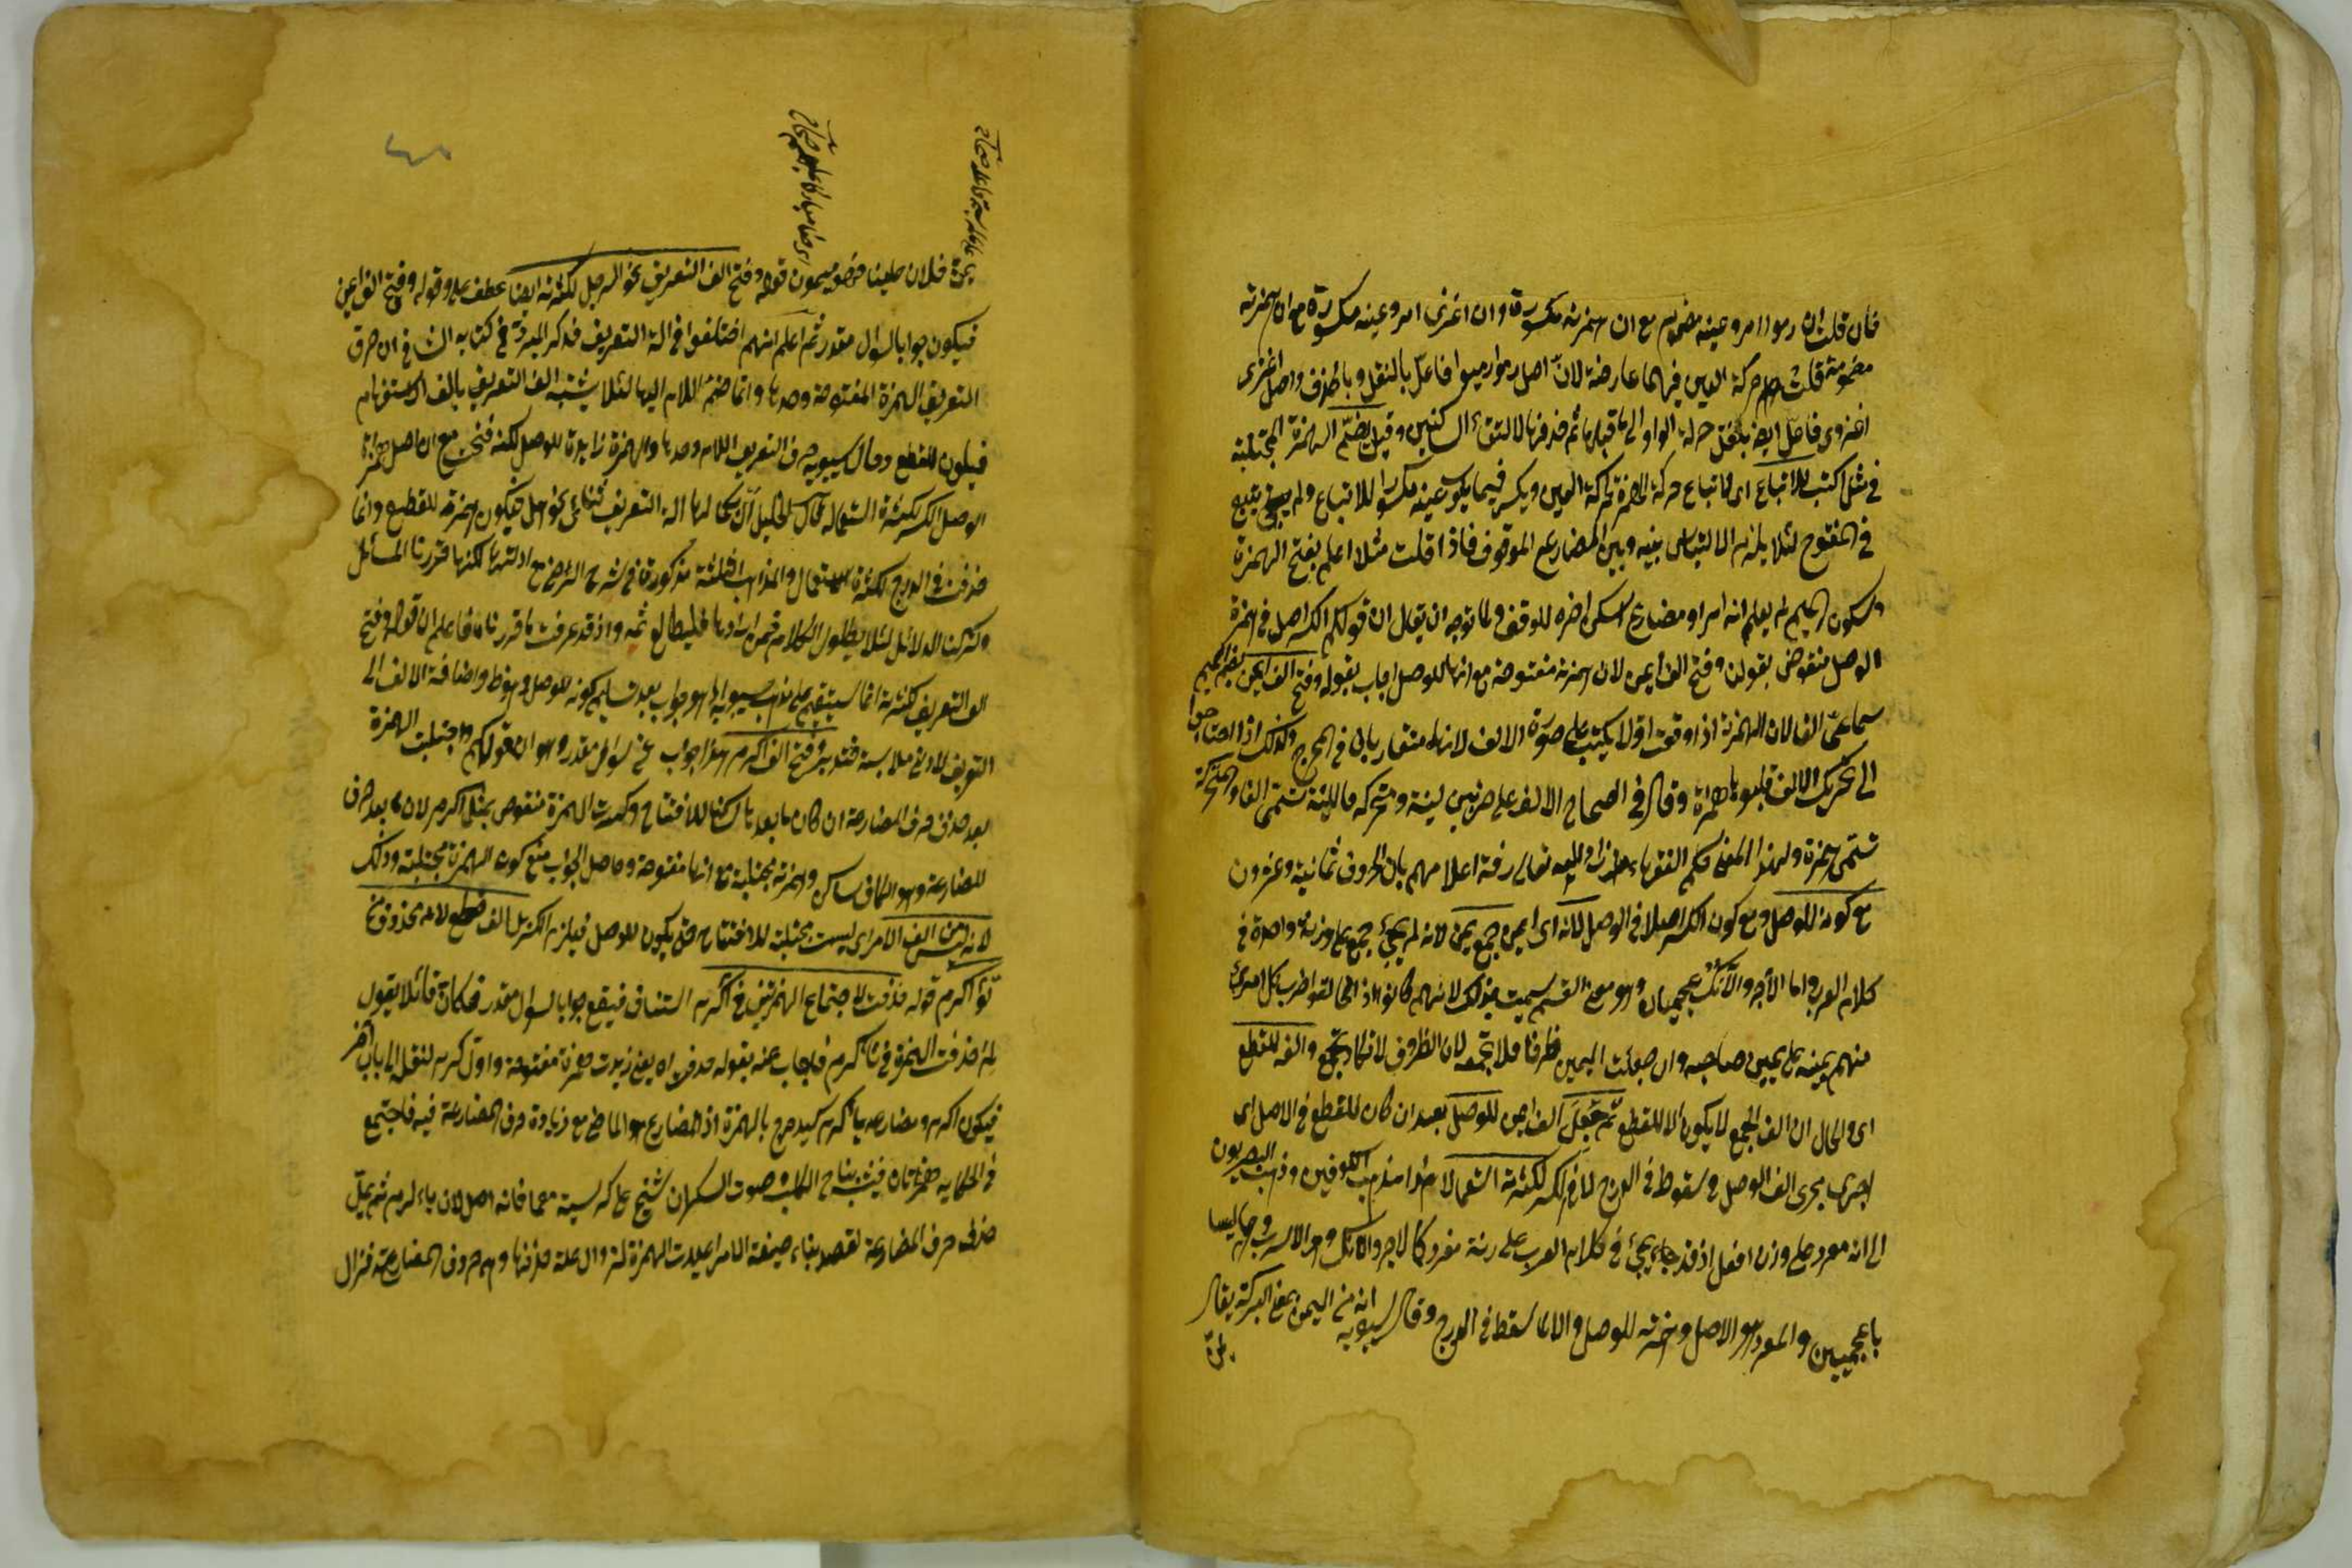 فان قلت ان ارموا امر وعينه مضموم مع ان همزته مكسورة وان اغزى امر وعينه مكسورة مع ان همزته
مضمومة قلت حركة العين فيهما عارضة لان اصل ارموا ارميوا فاعل بالنقل وبالحذف واصل اغزى
اغزوى فاعل ايضا بنقل حركة الواو الى ما قبلها ثم حذفها لالتقاء الساكنين وقيل بضم الهمزة المجتلبة
في مثل اكتب للاتباع اى لاتباع حركة الهمزة لحركة العين ويكسر فيما يكون عينه مكسورا للاتباع ولم يتبع
في المفتوح لئلا يلزم الالتباس بينه وبين المضارع الموقوف فاذا قلت مثلا اعلم بفتح الهمزة
وسكون الميم لم يعلم انه امر او مضارع اسكن اخره للوقف ولما توجه ان يقال ان قولكم الكسر اصل في همزة
الوصل منقوض بقولنا وفتح الف ايمن لان همزته مفتوحة مع انها للوصل اجاب بقوله وفتح الف ايمن بضم الميم
سماعى الفا لان الهمزة اذا وقعت اولا يكتب على صورة الالف لانهما متقاربان في المخرج وكذلك اذا احتاجوا
الى تحريك الالف قلبوها همزة وقال في الصحاح الالف على ضربين لينة ومتحركة فاللينة تسمى الفا والمتحركة
تسمى همزة ولهذا المعنى حكم الفقهاء تعالى رفة اعلامهم بان الحروف ثمانية وعشرون
مع كونه للوصل ومع كون الكسر اصلا في الوصل لانه اى ايمن جمع يمين لانه لم يجئ جمع على وزنه واحدة في
كلام العرب واما الآجر والآنك عجميان وهو موضع القسم سميت بذلك لانهم كانوا اذا تحالفوا ضرب كل امرئ
منهم يمينه على يمين صاحبه وان جعلت اليمين ظرفا فلا تجمعه لان الظروف لا تكاد تجمع والفه للقطع
اى والحال ان الف الجمع لا يكون الا للقطع ثم جعل الف ايمن للوصل بعد ان كان للقطع في الاصل اى
اجرى مجرى الف الوصل في سقوط في الدرج لا في الكسر لكثرته استعمالا هذا مذهب الكوفيين وذهب البصريون
الى انه مفرد على وزن افعل اذ قد جاء يجئ في كلام العرب على زنة مفرد كالاجر والانك وهو الاسرب وهما ليسا
باعجميين والمفرد هو الاصل وهمزته للوصل والا لما سقط في الدرج وقال سيبويه انه من اليمن بمعنى البركة يقال
يمن
يمن فلان علينا فهو ميمون قوله وفتح الف التعريف نحو الرجل لكثرته ايضا عطف على وقوله وفتح الف ايمن
فيكون جوابا لسؤال مقدر ثم اعلم انهم اختلفوا في الة التعريف فذكر المبرد في كتابه الشافي ان حرف
التعريف الهمزة المفتوحة وحدها وانما ضم اللام اليها لئلا يشتبه الف التعريف بالف الاستفهام
فيكون للقطع وقال سيبويه حرف التعريف اللام وحدها والهمزة زايدة للوصل لكنه فتحت مع ان اصل همزة
الوصل الكسر لكثرة استعماله قال الخليل ال بكمالها الة التعريف ثنائى نحو هل فيكون همزته للقطع وانما
حذفت في الدرج لكثرة الاستعمال والمذاهب الثلثة مذكورة في شرح الرضى مع ادلتها لكنها قررنا المسائل
وتركنا الدلائل لئلا يطول الكلام فمن ارادها فليطالع ثمه واذ قد عرفت ما قررنا فاعلم ان قوله وفتح
الف التعريف لكثرته انما يستقيم على مذهب سيبويه او هو جواب بعد تسليم كونه للوصل وسقوط واضافة الالف الى
التعريف لادنى ملابسة فتدبر وفتح الف اكرم هذا جواب عن سؤال مقدر وهو ان قولكم واجتلبت الهمزة
بعد حذف حرف المضارعة ان كان ما بعدها ساكنا للافتتاح وكسرت الهمزة منقوض بمثل اكرم لان ما بعد حرف
المضارعة وهو الكاف ساكن وهمزته مجتلبة مع انها مفتوحة وحاصل الجواب منع كون الهمزة مجتلبة وذلك
لانه ليس من الف الامر اى ليست مجتلبة للافتتاح حتى يكون للوصل فيلزم الكسر بل الف قطع لانه محذوف من
تؤاكرم قوله حذفت لاجتماع الهمزتين في اأكرم استئناف فيقع جوابا لسؤال مقدر فكان قائلا يقول
لم حذفت الهمزة في تأكرم فاجاب عنه بقوله حذف اه يعنى زيدت همزة مفتوحة واول كرم لنقله الى باب آخر
فيكون اكرم ومضارعه يأكرم كيدحرج بالهمزة اذ المضارع هو الماضى مع زيادة حرف المضارعة فيه فاجتمع
في الحكاية همزتان فيشبه بنباح الكلب وصوت السكران
حذف حرف المضارعة لقصد بناء صيغة الامر اعيدت الهمزة لزوال علة حذفها وهى حروف المضارعة فزال